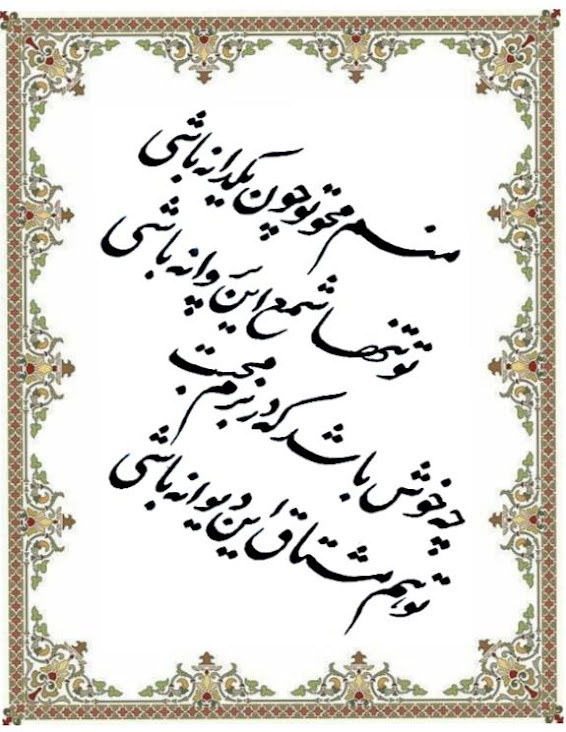 منم محو تو چون یکدانه باشی
تو تنها شمع این پروانه باشی
چه خوش باشد که در بزم محبت
تو هم مشتاق این دیوانه باشی